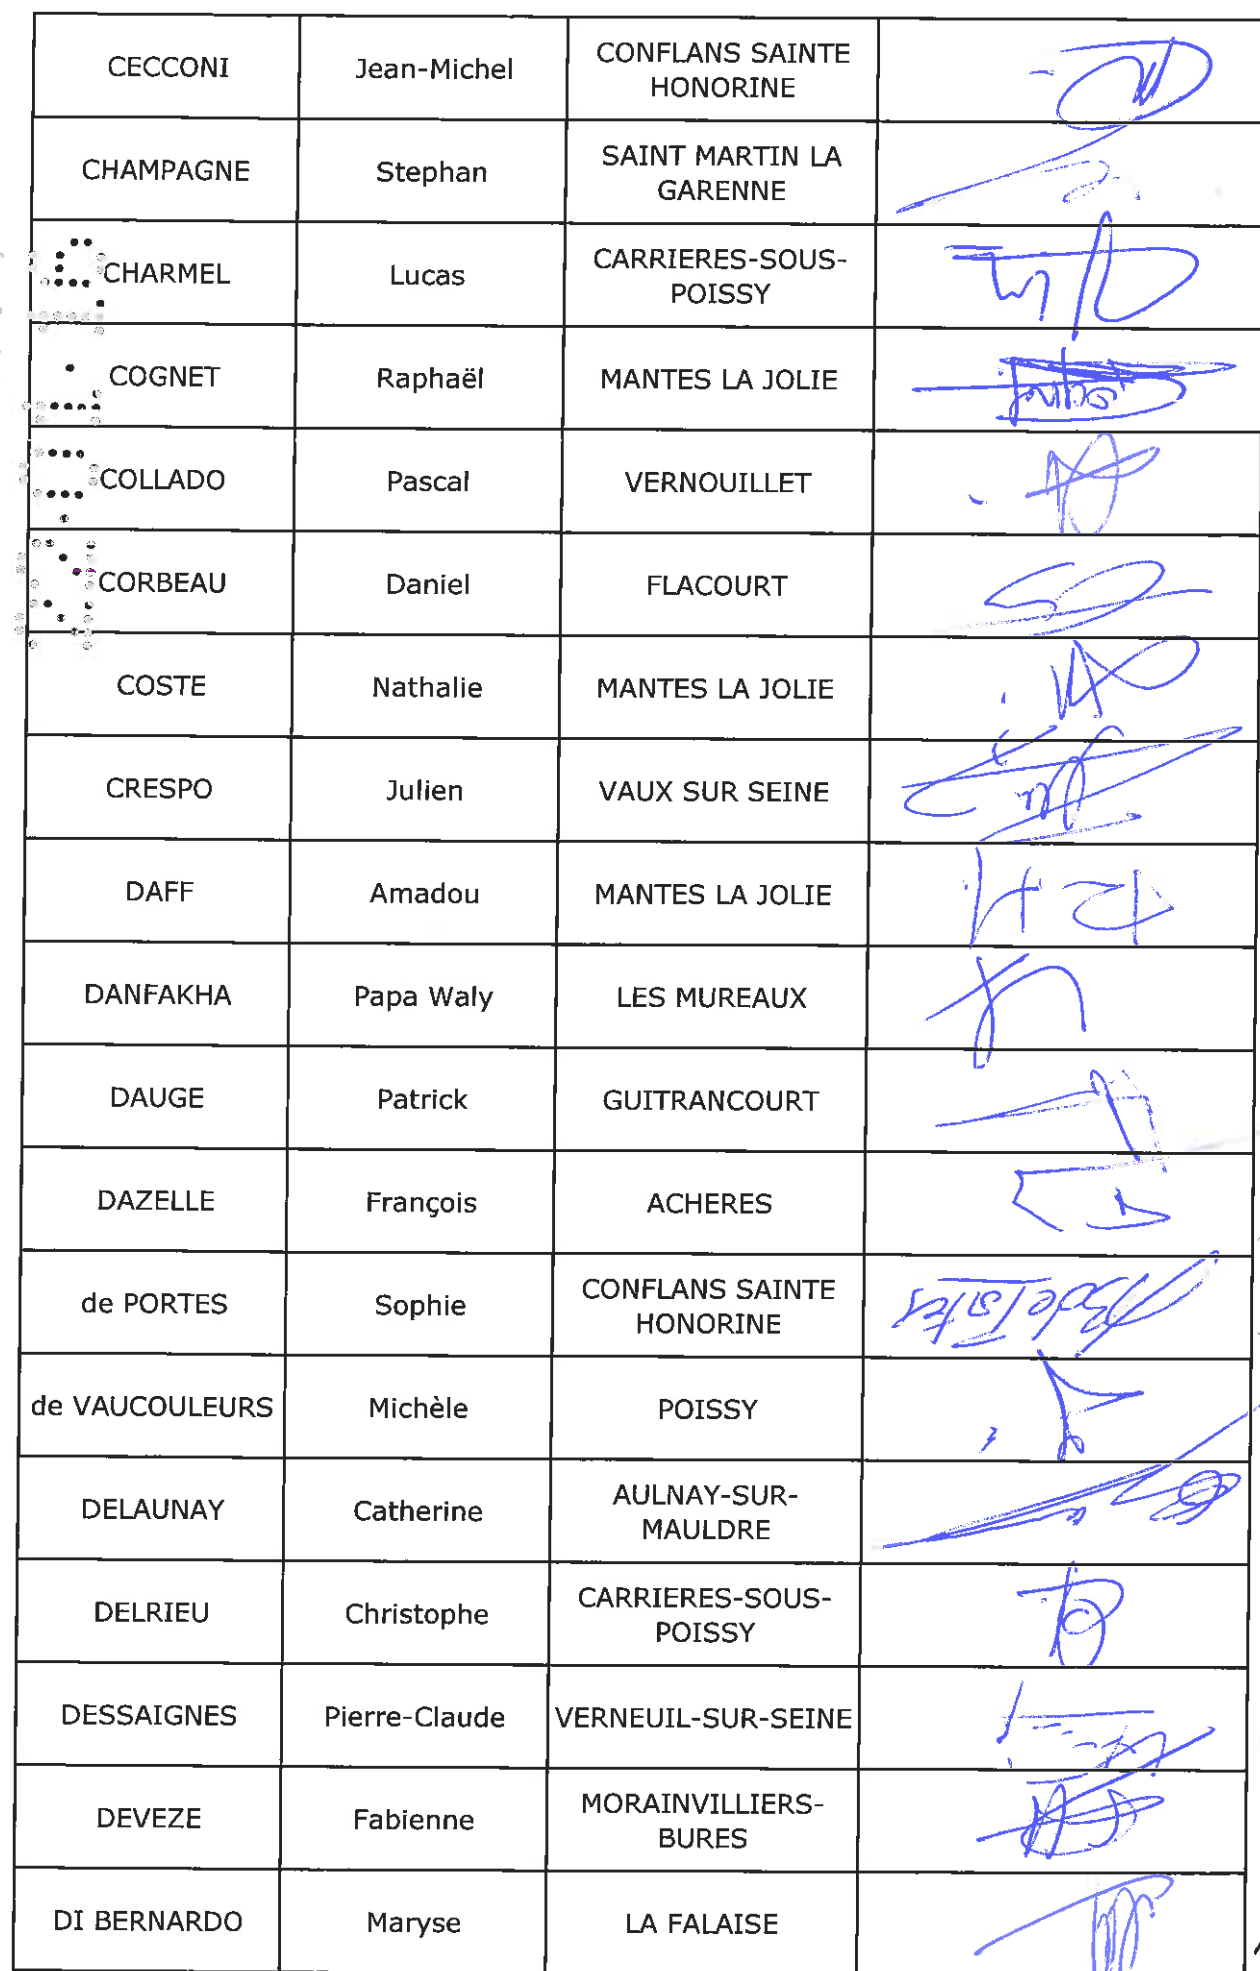 CECCONI Jean-Michel CONFLANS SAINTE
HONORINE
CHAMPAGNE Stephan SAINT MARTIN LA
GARENNE
CHARMEL Lucas CARRIERES-SOUS-
POISSY
COGNET Raphaël MANTES LA JOLIE
COLLADO Pascal VERNOUILLET
CORBEAU Daniel FLACOURT
COSTE Nathalie MANTES LA JOLIE
CRESPO Julien VAUX SUR SEINE
DAFF Amadou MANTES LA JOLIE
DANFAKHA Papa Waly LES MUREAUX
DAUGE Patrick GUITRANCOURT
DAZELLE François ACHERES
de PORTES Sophie CONFLANS SAINTE
HONORINE
de VAUCOULEURS Michèle POISSY
DELAUNAY Catherine AULNAY-SUR-
MAULDRE
DELRIEU Christophe CARRIERES-SOUS-
POISSY
DESSAIGNES Pierre-Claude VERNEUIL-SUR-SEINE
DEVEZE Fabienne MORAINVILLIERS-
BURES
DI BERNARDO Maryse LA FALAISE